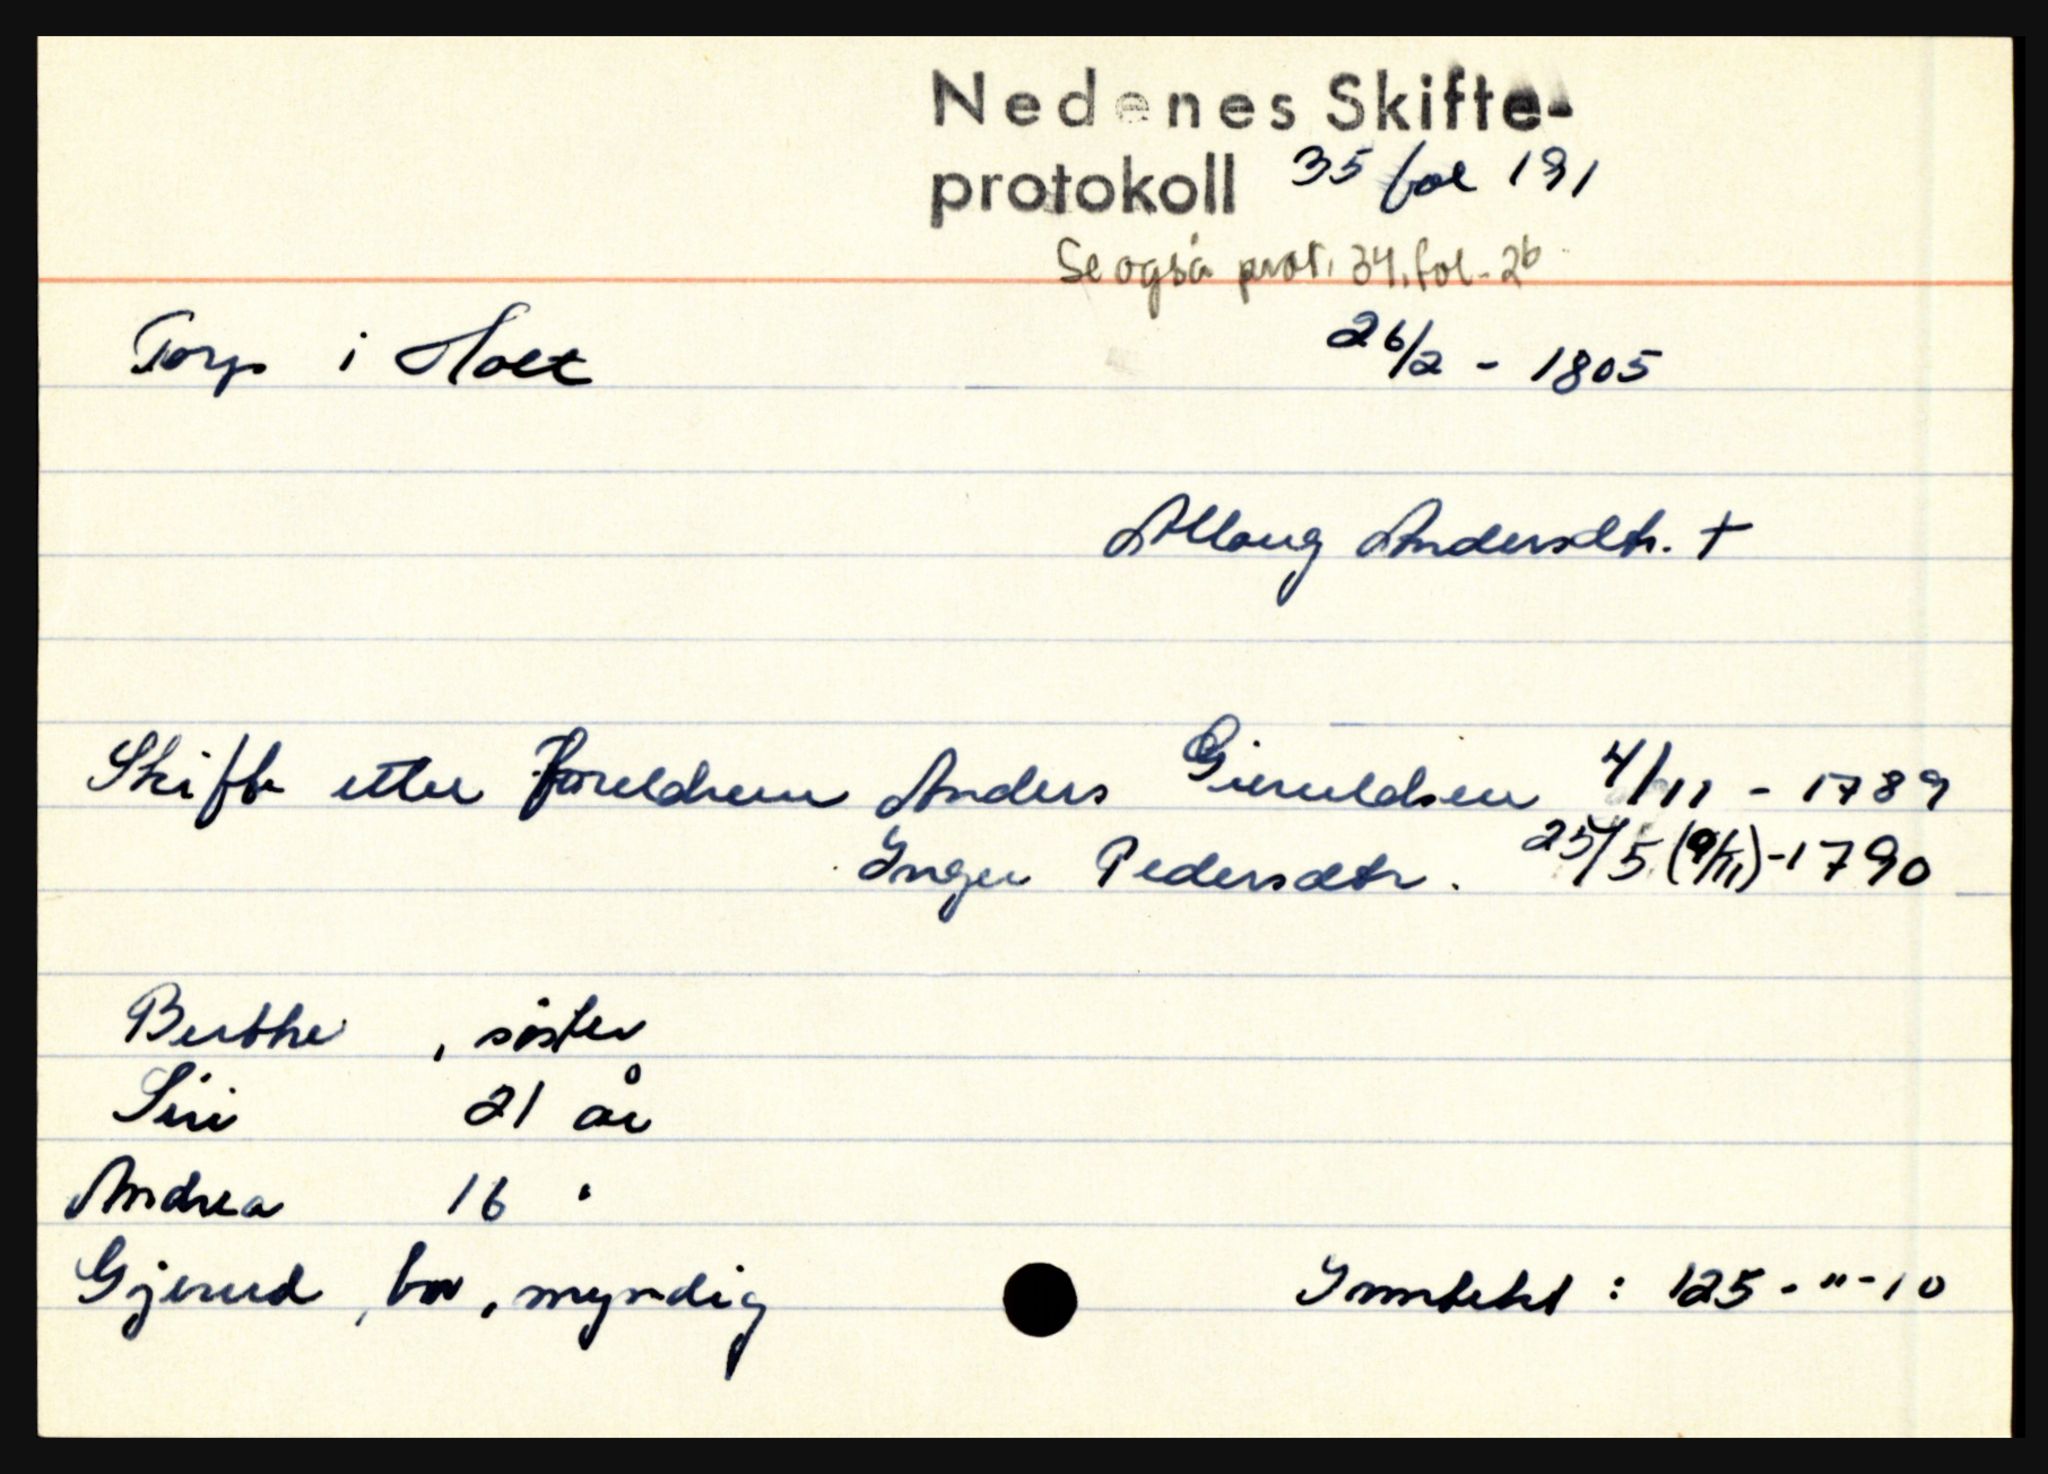 Nedenes Skifte-
protokoll 35 fol 191
Se også prot. 34. fol. 26
Torp i Holt 26/2 - 1805
Allaug Andersdtr. +
Skifte etter foreldrene Anders Gieruldsen 4/11 - 1789
Inger Pedersdtr. 25/5 (9/11) - 1790
Berthe , søster
Siri 21 år
Andrea 16 "
Gjerud , bror , myndig Inntekt : 125 - " - 10